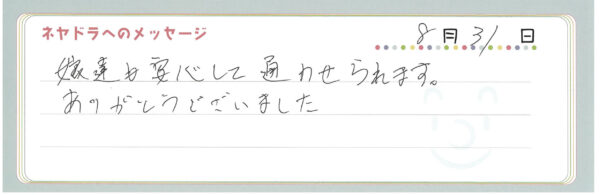 ネヤドラへのメッセージ
8月31日
嫁達も安心して通わせられます。
ありがとうございました